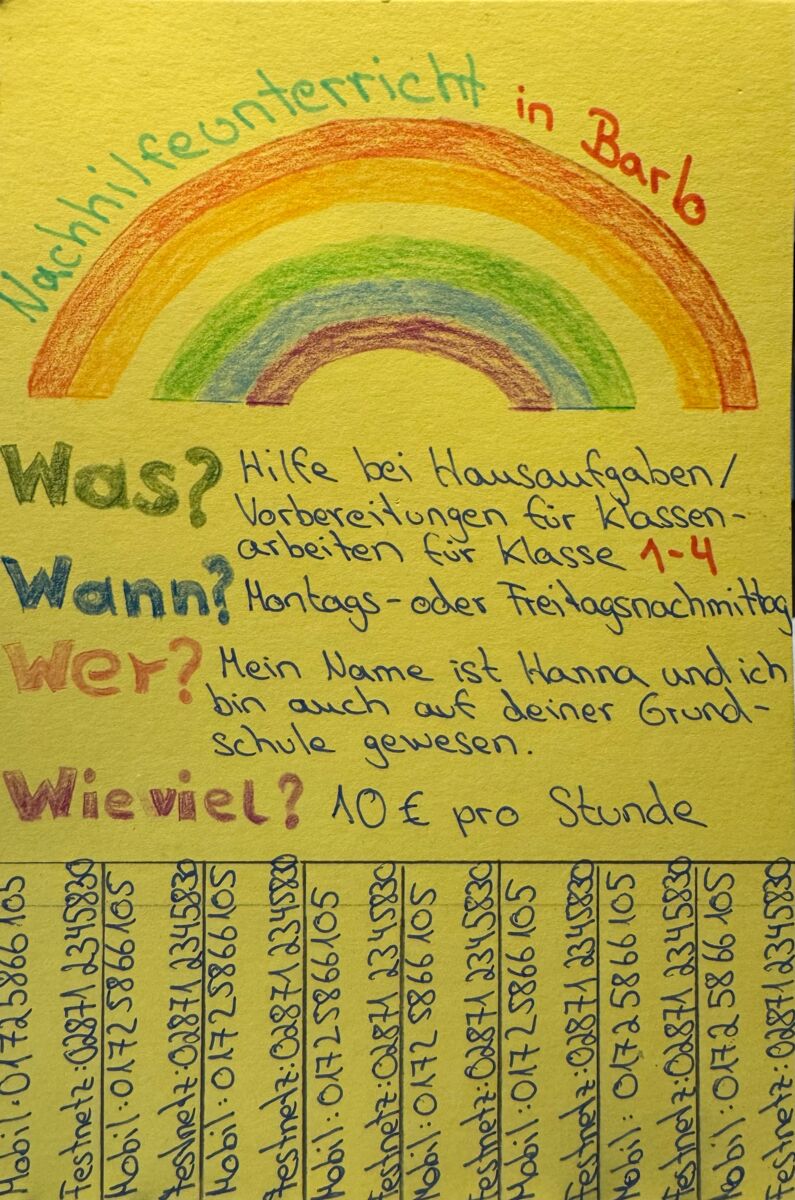 Nachhilfeunterricht in Barlo
Was? Hilfe bei Hausaufgaben/
Vorbereitungen für Klassen-
arbeiten für Klasse 1-4
Wann? Montags- oder Freitagsnachmittag
Wer? Mein Name ist Hanna und ich
bin auch auf deiner Grund-
schule gewesen.
Wieviel? 10 € pro Stunde
Mobil: 0172 5866105
Festnetz: 02871 2345830
Mobil: 0172 5866105
Festnetz: 02871 2345830
Mobil: 0172 5866105
Festnetz: 02871 2345830
Mobil: 0172 5866105
Festnetz: 02871 2345830
Mobil: 0172 5866105
Festnetz: 02871 2345830
Mobil: 0172 5866105
Festnetz: 02871 2345830
Mobil: 0172 5866105
Festnetz: 02871 2345830
Mobil: 0172 5866105
Festnetz: 02871 2345830